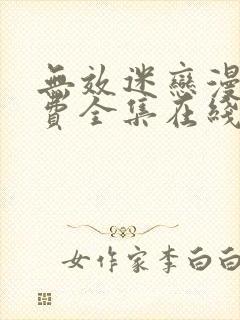 無效迷戀漫
費全集在綫
女作家李白白